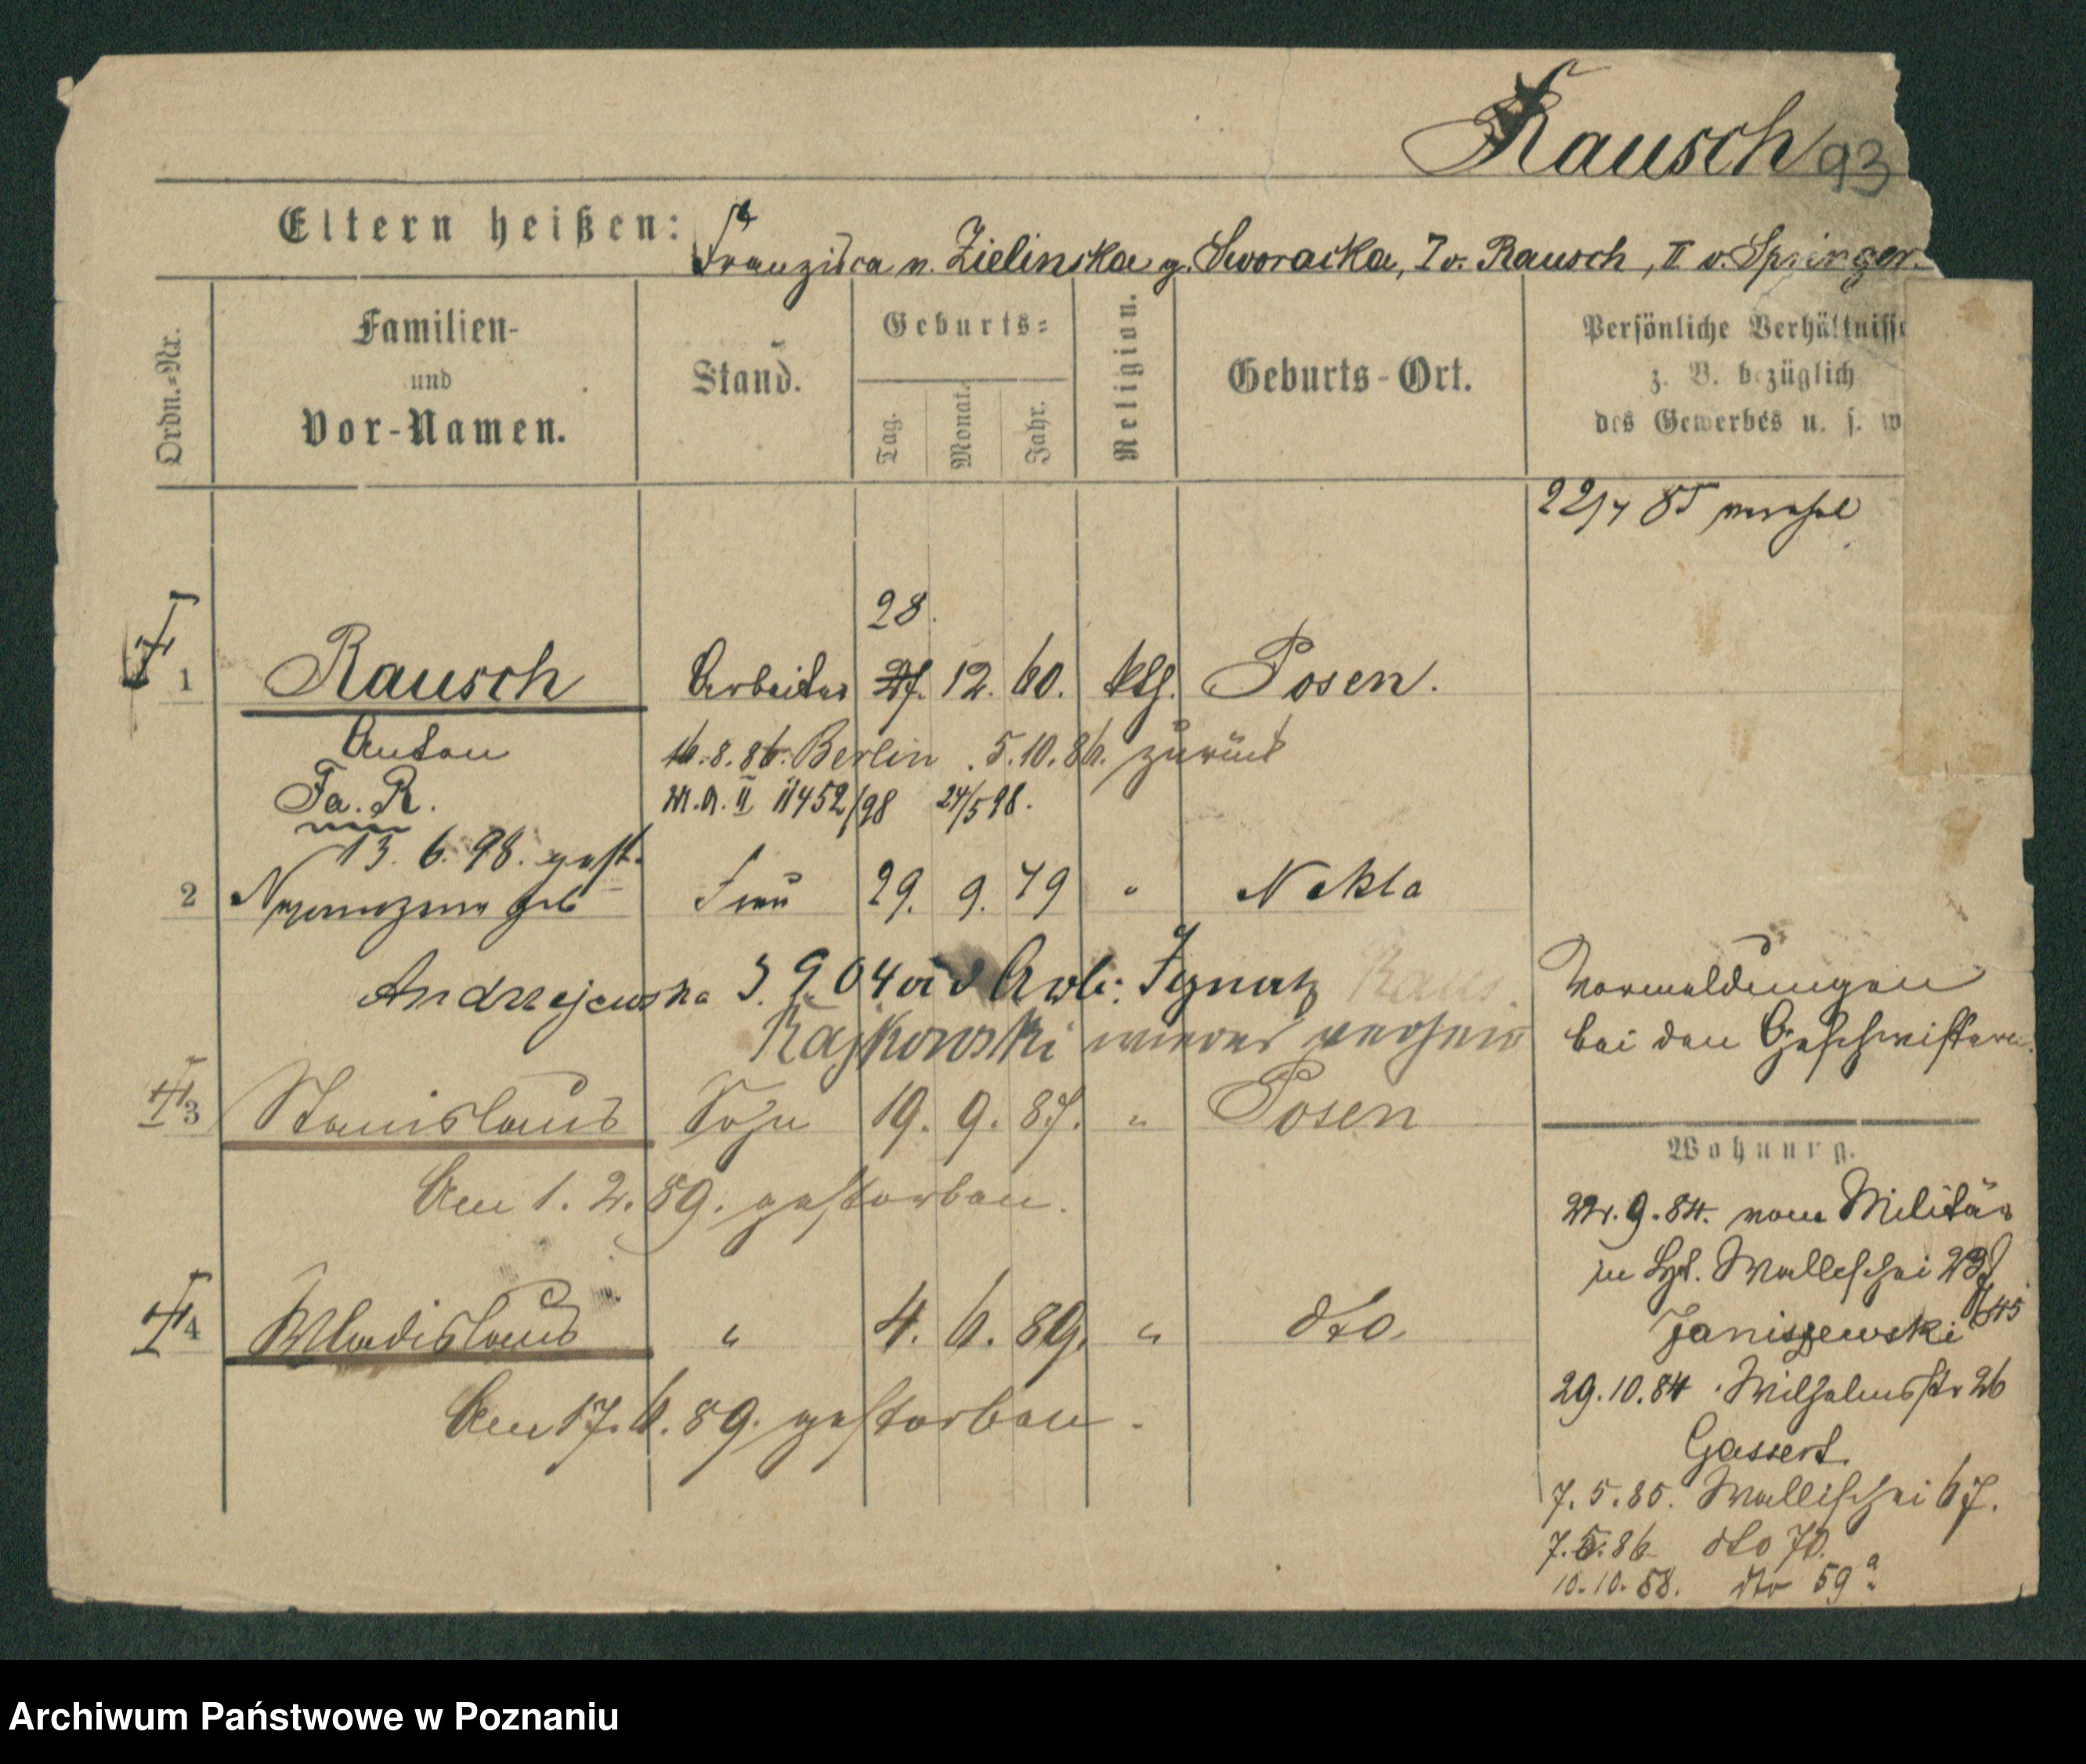 Rausch 93
Eltern heißen: Franzisca v. Zielinska g. Sworacka, I v. Rausch, II v. Springer.
Ordn.-Nr.
Familien-
und
Vor-Namen.
Stand.
Geburts-
Tag.
Monat.
Jahr.
Religion.
Geburts-Ort.
Persönliche Verhältnisse
z. B. bezüglich
des Gewerbes u. s. w
22/7 85
28.
1 Rausch Arbeiter 12. 60. kth. Posen.
Anton 16.8.86. Berlin. 5.10.86. zurück
Fa. R. II 11452/98 24/5 98.
13. 6. 98. gest.
2 Nepomuzena geb Frau 29. 9. 79 " Nekla
Andrzejewska 3. 9. 04 Arb: Ignatz
Rajkowski wieder verheir
Vormeldungen
bei den Geschwistern.
3 Stanislaus Sohn 19. 9. 87. " Posen
Am 1. 2. 89. gestorben.
4 Wladislaus " 4. 6. 89. " dto.
Am 17. 6. 89. gestorben.
Wohnung.
22.9.84. vom Militär
in Wallischei
Janiszewski
29.10.84 Wilhelmsstr 26
Gassert.
7.5.85. Wallischei 67.
7.5.86 dto 70.
10.10.88. dto 59a
Archiwum Państwowe w Poznaniu